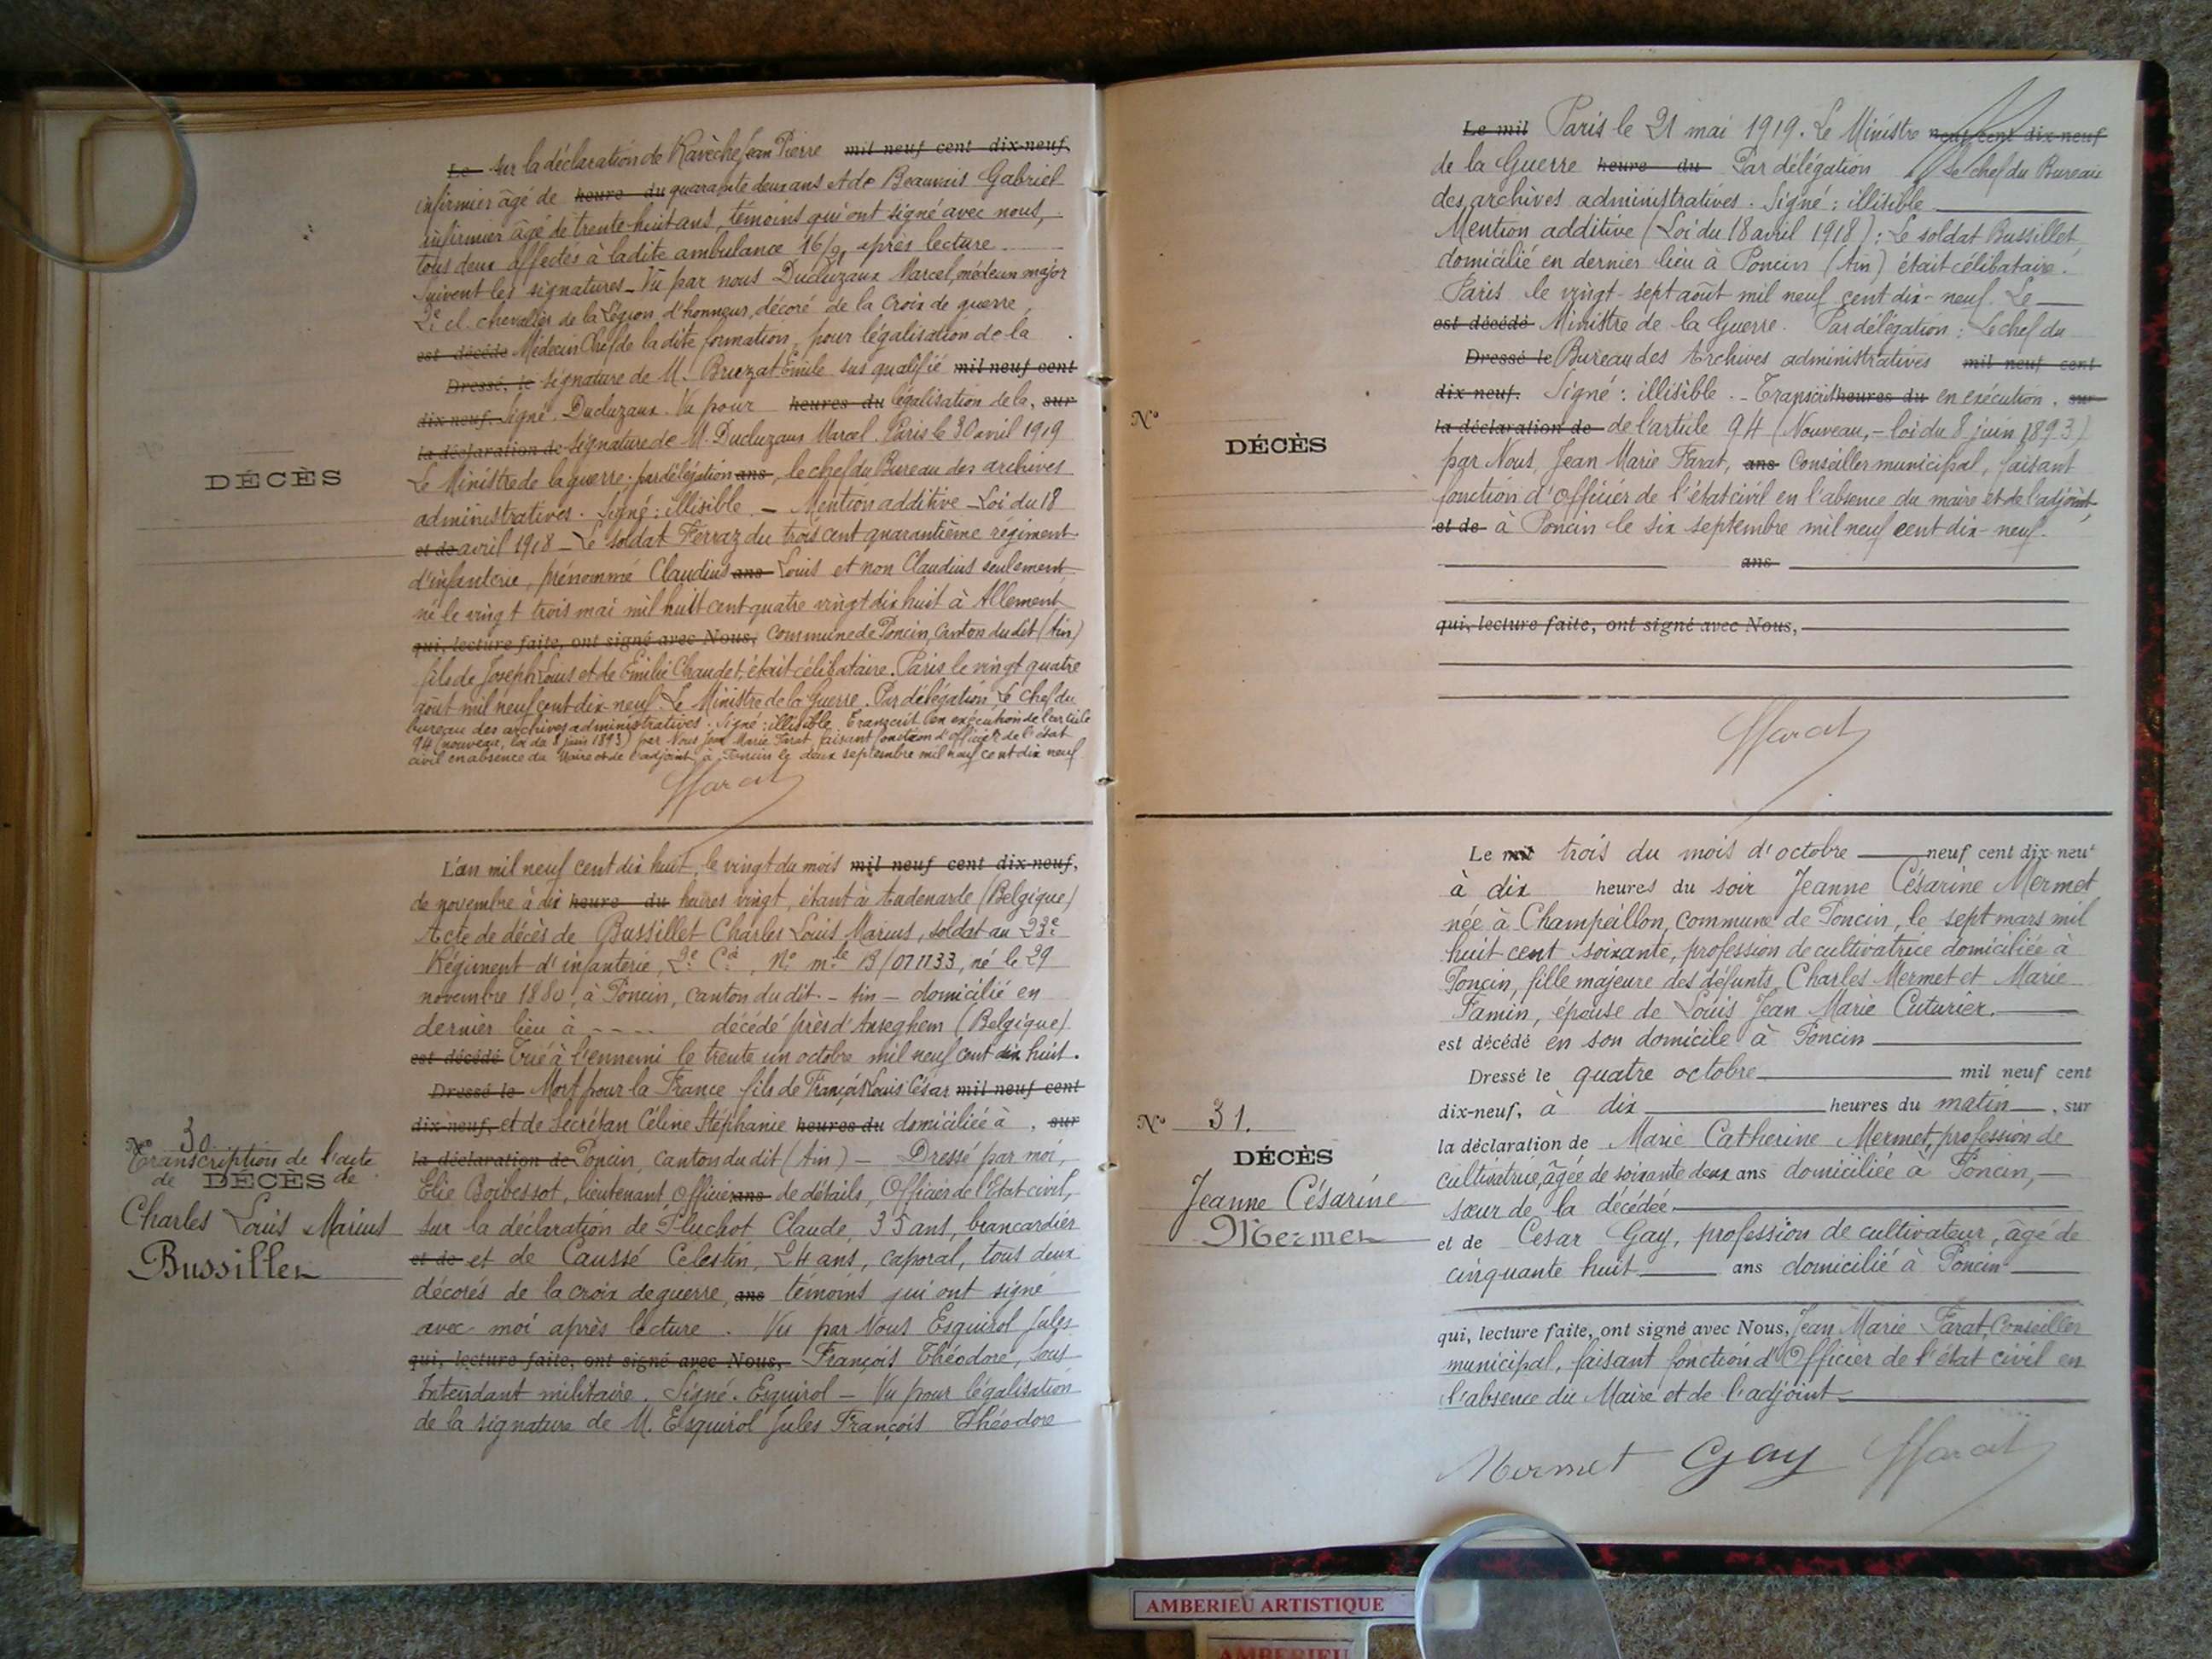 Le sur la déclaration de Ravèche Jean Pierre mil neuf cent dix-neuf,
infirmier âgé de heure du quarante deux ans et de Beauvais Gabriel
infirmier âgé de trente-huit ans, témoins qui ont signé avec nous,
tous deux affectés à ladite ambulance 16/9, après lecture
suivent les signatures - Vu par nous Ducluzaux Marcel, médecin major
2e cl. chevalier de la Légion d'honneur, décoré de la Croix de guerre
est décédé Médecin Chef de la dite formation, pour légalisation de la
Dressé, le signature de M. Bruzat Emile sus qualifié mil neuf cent
dix-neuf. Signé. Ducluzaux. Vu pour heures du légalisation de la, sur
la déclaration de signature de M. Ducluzaux Marcel. Paris le 30 avril 1919
Le Ministre de la guerre, par délégation ans, le chef du Bureau des archives
administratives. Signé : illisible - Mention additive - Loi du 18
DÉCÈS
et de avril 1918 - Le soldat Ferraz du trois cent quarantième régiment
d'infanterie, prénommé Claudius ans Louis et non Claudius seulement
né le vingt trois mai mil huit cent quatre vingt dix huit à Allement
qui, lecture faite, ont signé avec Nous, commune de Poncin, Canton du dit (Ain)
fils de Joseph Louis et de Emilie Chaudet, était célibataire. Paris le vingt quatre
août mil neuf cent dix-neuf. Le Ministre de la Guerre. Par délégation, Le Chef du
bureau des archives administratives. Signé : illisible Transcrit en exécution de l'article
94 (nouveau, loi du 8 juin 1893) par Nous Jean Marie Farat, faisant fonction d'officier de l'état
civil en absence du Maire et de l'adjoint à Poncin le deux septembre mil neuf cent dix neuf
Farat
L'an mil neuf cent dix huit, le vingt du mois mil neuf cent dix-neuf,
de novembre à dix heure du heures vingt, étant à Audenarde (Belgique)
Acte de décès de Bussillet Charles Louis Marius, soldat au 23e
Régiment d'infanterie, 2e Cie, No mle 13/011133, né le 29
novembre 1880, à Poncin, canton du dit - Ain - domicilié en
dernier lieu à - - - - décédé près d'Anseghem (Belgique)
est décédé Tué à l'ennemi le trente un octobre mil neuf cent dix huit.
Dressé le Mort pour la France fils de François Louis César mil neuf cent
dix-neuf, et de Secrétan Céline Stéphanie heures du domiciliée à, sur
la déclaration de Poncin, canton du dit (Ain) - Dressé par moi,
Elie Boibessot, lieutenant Officier ans de détails, Officier de l'Etat civil,
sur la déclaration de Pluchot Claude, 35 ans, brancardier
et de et de Caussé Célestin, 24 ans, caporal, tous deux
décorés de la croix de guerre, ans témoins qui ont signé
avec moi après lecture. Vu par Nous Esquirol Jules
qui, lecture faite, ont signé avec Nous, François Théodore, Sous
Intendant militaire. Signé. Esquirol - Vu pour légalisation
de la signature de M. Esquirol Jules François Théodore
No 30
Transcription de l'acte
de DÉCÈS de
Charles Louis Marius
Bussillet
Le mil Paris le 21 mai 1919. Le Ministre neuf cent dix-neuf
de la Guerre heure du Par délégation Le chef du Bureau
des archives administratives. Signé : illisible
Mention additive (Loi du 18 avril 1918) : Le soldat Bussillet
domicilié en dernier lieu à Poncin (Ain) était célibataire.
Paris le vingt-sept août mil neuf cent dix-neuf. Le
est décédé Ministre de la Guerre. Par délégation : Le chef du
Dressé le Bureau des Archives administratives mil neuf cent
dix-neuf. Signé : illisible. - Transcrit heures du en exécution, sur
No
DÉCÈS
la déclaration de de l'article 94 (Nouveau, - loi du 8 juin 1893)
par Nous, Jean Marie Farat, ans Conseiller municipal, faisant
fonction d'Officier de l'état civil en l'absence du maire et de l'adjoint
et de à Poncin le six septembre mil neuf cent dix-neuf.
ans
qui, lecture faite, ont signé avec Nous,
Farat
Le mil trois du mois d'octobre neuf cent dix-neuf
à dix heures du soir Jeanne Césarine Mermet
née à Champeillon, commune de Poncin, le sept mars mil
huit cent soixante, profession de cultivatrice domiciliée à
Poncin, fille majeure des défunts Charles Mermet et Marie
Famin, épouse de Louis Jean Marie Cuturier.
est décédé en son domicile à Poncin
Dressé le quatre octobre mil neuf cent
dix-neuf, à dix heures du matin, sur
la déclaration de Marie Catherine Mermet, profession de
cultivatrice, âgée de soixante deux ans domiciliée à Poncin,
sœur de la décédée
et de César Gay, profession de cultivateur, âgé de
cinquante huit ans domicilié à Poncin
qui, lecture faite, ont signé avec Nous, Jean Marie Farat, Conseiller
municipal, faisant fonction d'Officier de l'état civil en
l'absence du Maire et de l'adjoint
Mermet Gay Farat
No 31.
DÉCÈS
Jeanne Césarine
Mermet
AMBERIEU ARTISTIQUE
AMBERIEU